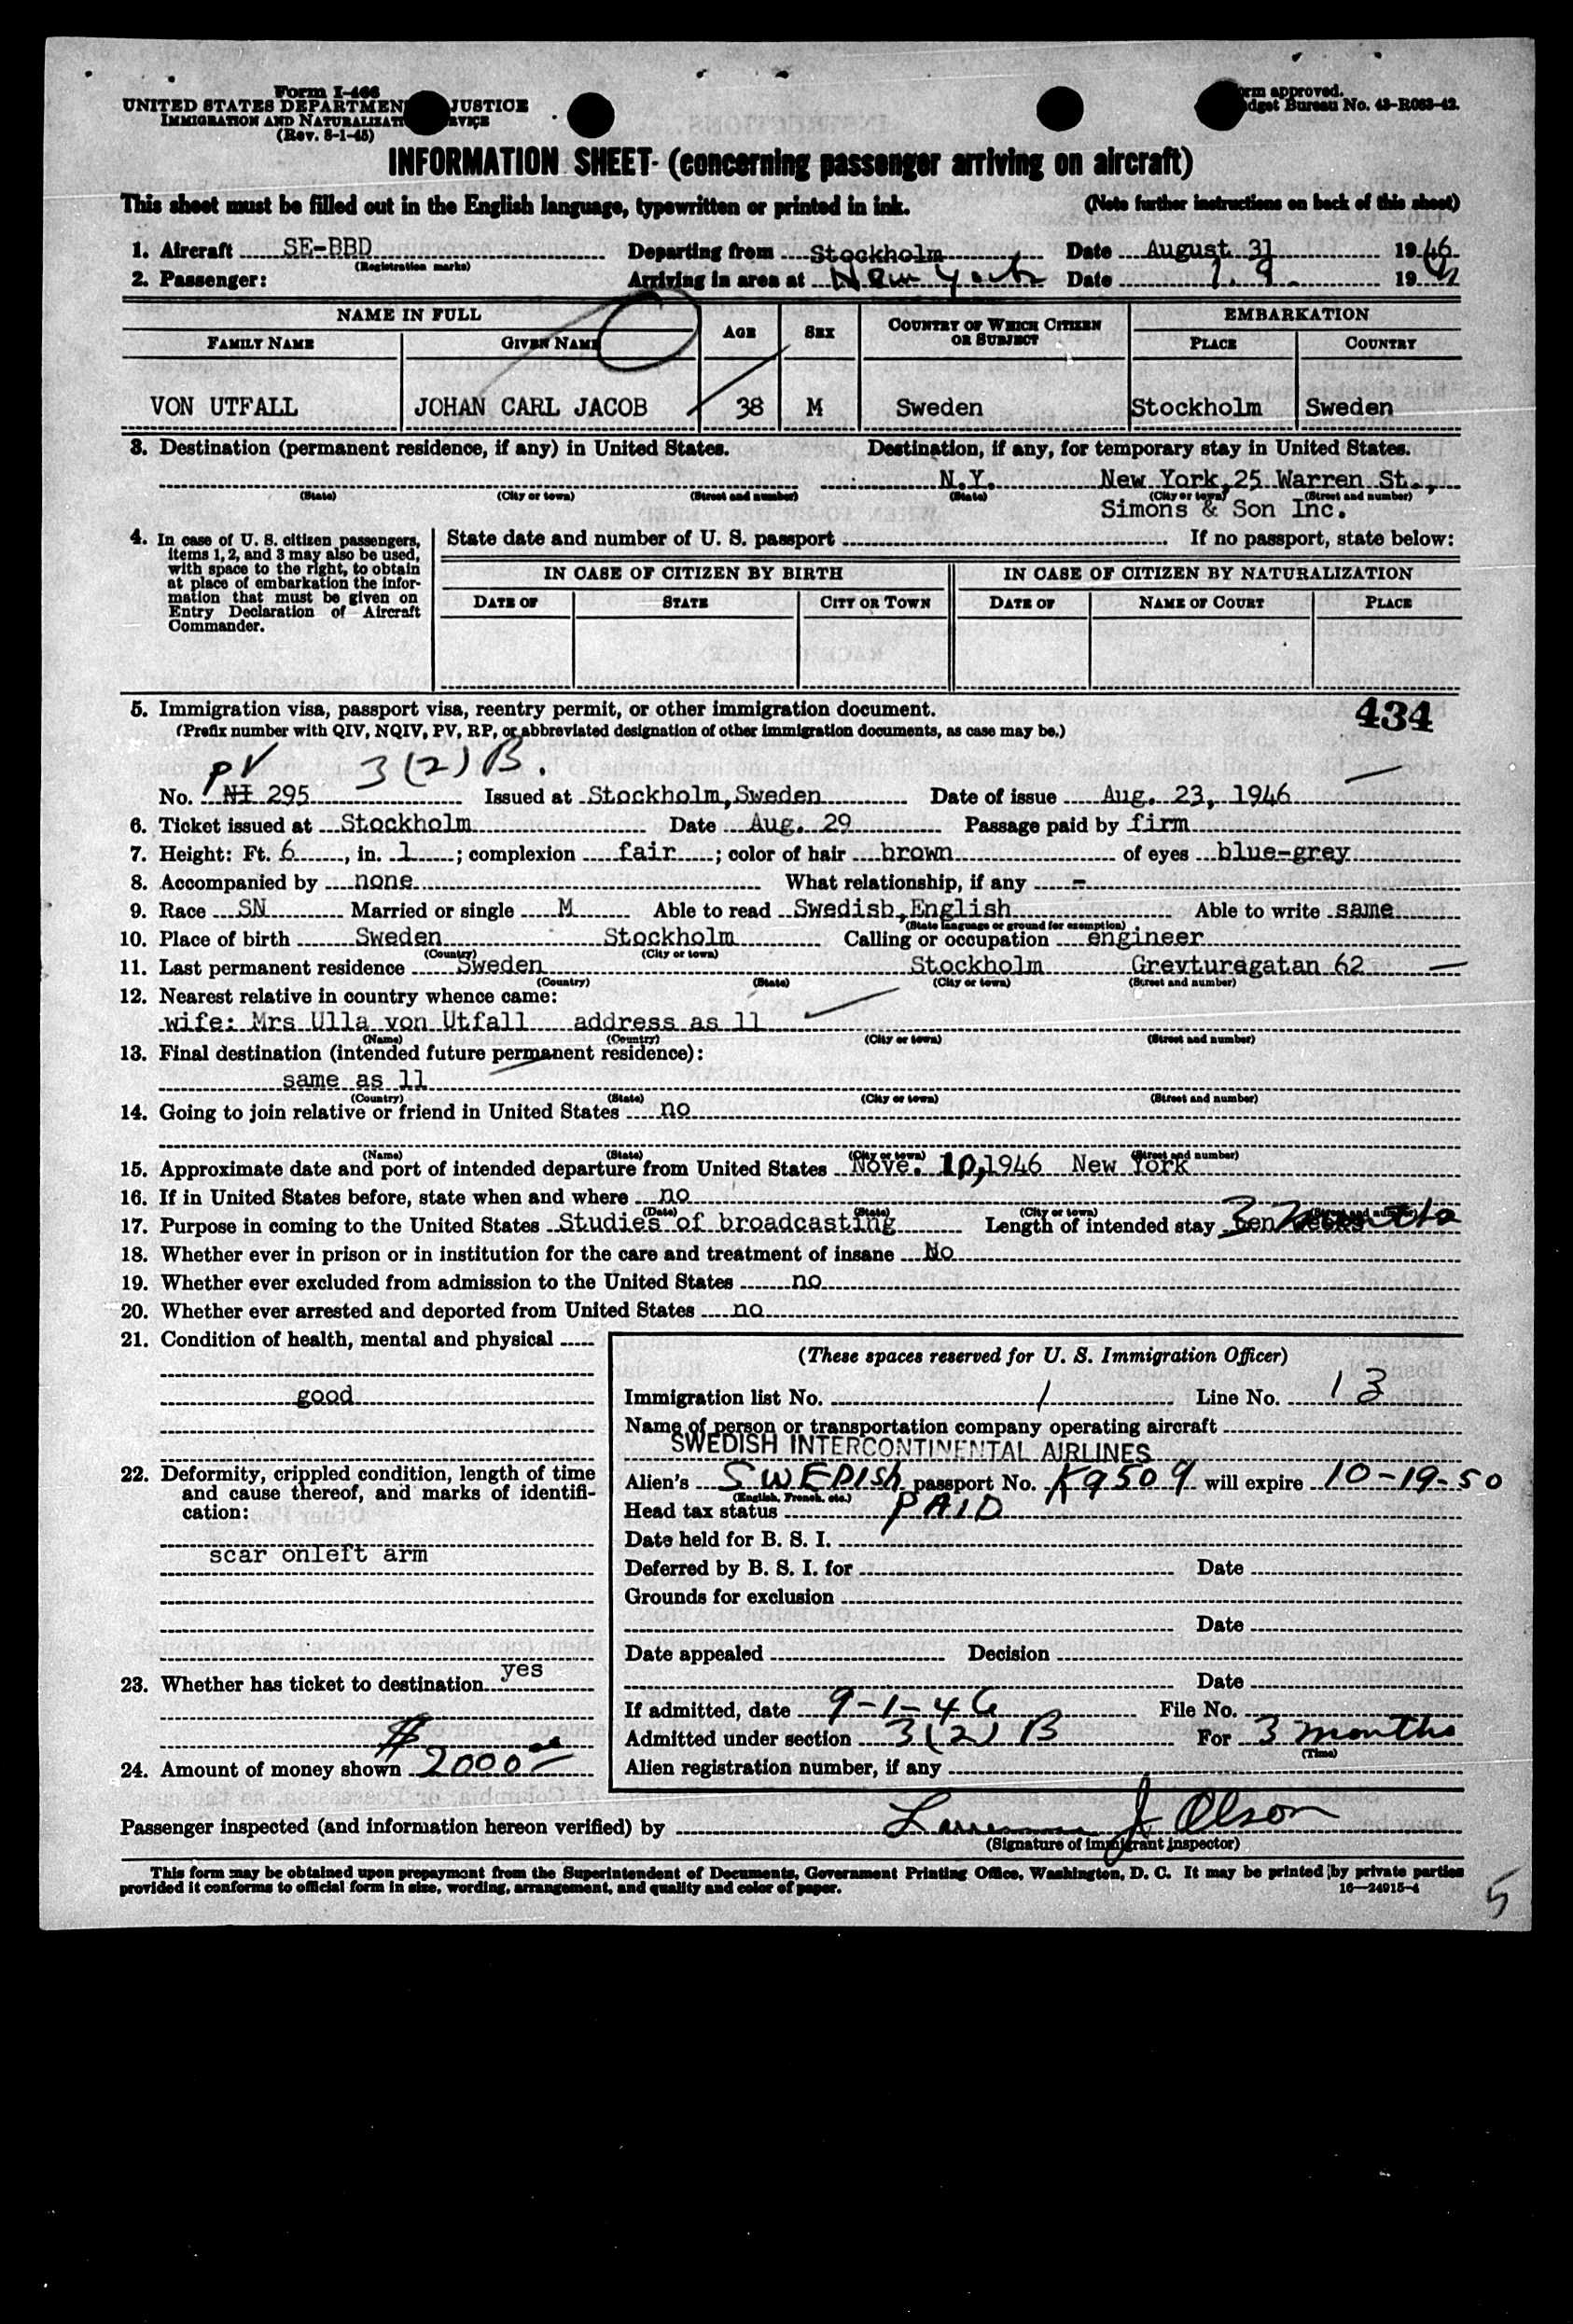 Form I-466
UNITED STATES DEPARTMEN JUSTICE
IMMIGRATION AND NATURALIZATI RVICE
(Rev. 8-1-45)
orm approved.
dget Bureau No. 43-R063-42.
INFORMATION SHEET (concerning passenger arriving on aircraft)
This sheet must be filled out in the English language, typewritten or printed in ink. (Note further instructions on back of this sheet)
1. Aircraft SE-BBD Departing from Stockholm Date August 31 1946
(Registration marks)
2. Passenger: Arriving in area at New York Date 1.9. 19
NAME IN FULL AGE SEX COUNTRY OF WHICH CITIZEN OR SUBJECT EMBARKATION
FAMILY NAME GIVEN NAME PLACE COUNTRY
VON UTFALL JOHAN CARL JACOB 38 M Sweden Stockholm Sweden
3. Destination (permanent residence, if any) in United States. Destination, if any, for temporary stay in United States.
N.Y. New York, 25 Warren St.,
(State) (City or town) (Street and number) (State) (City or town) (Street and number)
Simons & Son Inc.
4. In case of U. S. citizen passengers, items 1, 2, and 3 may also be used, with space to the right, to obtain at place of embarkation the information that must be given on Entry Declaration of Aircraft Commander.
State date and number of U. S. passport If no passport, state below:
IN CASE OF CITIZEN BY BIRTH IN CASE OF CITIZEN BY NATURALIZATION
DATE OF STATE CITY OR TOWN DATE OF NAME OF COURT PLACE
5. Immigration visa, passport visa, reentry permit, or other immigration document. 434
(Prefix number with QIV, NQIV, PV, RP, or abbreviated designation of other immigration documents, as case may be.)
PV 3(2)B.
No. NI 295 Issued at Stockholm, Sweden Date of issue Aug. 23, 1946
6. Ticket issued at Stockholm Date Aug. 29 Passage paid by firm
7. Height: Ft. 6, in. 1; complexion fair; color of hair brown of eyes blue-grey
8. Accompanied by none What relationship, if any -
9. Race SN Married or single M Able to read Swedish, English Able to write same
(State language or ground for exemption)
10. Place of birth Sweden Stockholm Calling or occupation engineer
(Country) (City or town)
11. Last permanent residence Sweden Stockholm Grevturegatan 62
(Country) (State) (City or town) (Street and number)
12. Nearest relative in country whence came:
wife: Mrs Ulla von Utfall address as 11
(Name) (Country) (City or town) (Street and number)
13. Final destination (intended future permanent residence):
same as 11
(Country) (State) (City or town) (Street and number)
14. Going to join relative or friend in United States no
(Name) (State) (City or town) (Street and number)
15. Approximate date and port of intended departure from United States Nove. 10, 1946 New York
16. If in United States before, state when and where no
(Date) (State) (City or town) (Street and number)
17. Purpose in coming to the United States Studies of broadcasting Length of intended stay ten weeks 3 months
18. Whether ever in prison or in institution for the care and treatment of insane No
19. Whether ever excluded from admission to the United States no
20. Whether ever arrested and deported from United States no
21. Condition of health, mental and physical
good
22. Deformity, crippled condition, length of time and cause thereof, and marks of identification:
scar onleft arm
23. Whether has ticket to destination yes
24. Amount of money shown $2000
(These spaces reserved for U. S. Immigration Officer)
Immigration list No. 1 Line No. 13
Name of person or transportation company operating aircraft
SWEDISH INTERCONTINENTAL AIRLINES
Alien's SWEDISH passport No. K9509 will expire 10-19-50
(English, French, etc.)
Head tax status PAID
Date held for B. S. I.
Deferred by B. S. I. for Date
Grounds for exclusion
Date
Date appealed Decision
Date
If admitted, date 9-1-46 File No.
Admitted under section 3(2)B For 3 months
(Time)
Alien registration number, if any
Passenger inspected (and information hereon verified) by J Olson
(Signature of immigrant inspector)
This form may be obtained upon prepayment from the Superintendent of Documents, Government Printing Office, Washington, D. C. It may be printed by private parties
provided it conforms to official form in size, wording, arrangement, and quality and color of paper. 16—24915-4
5